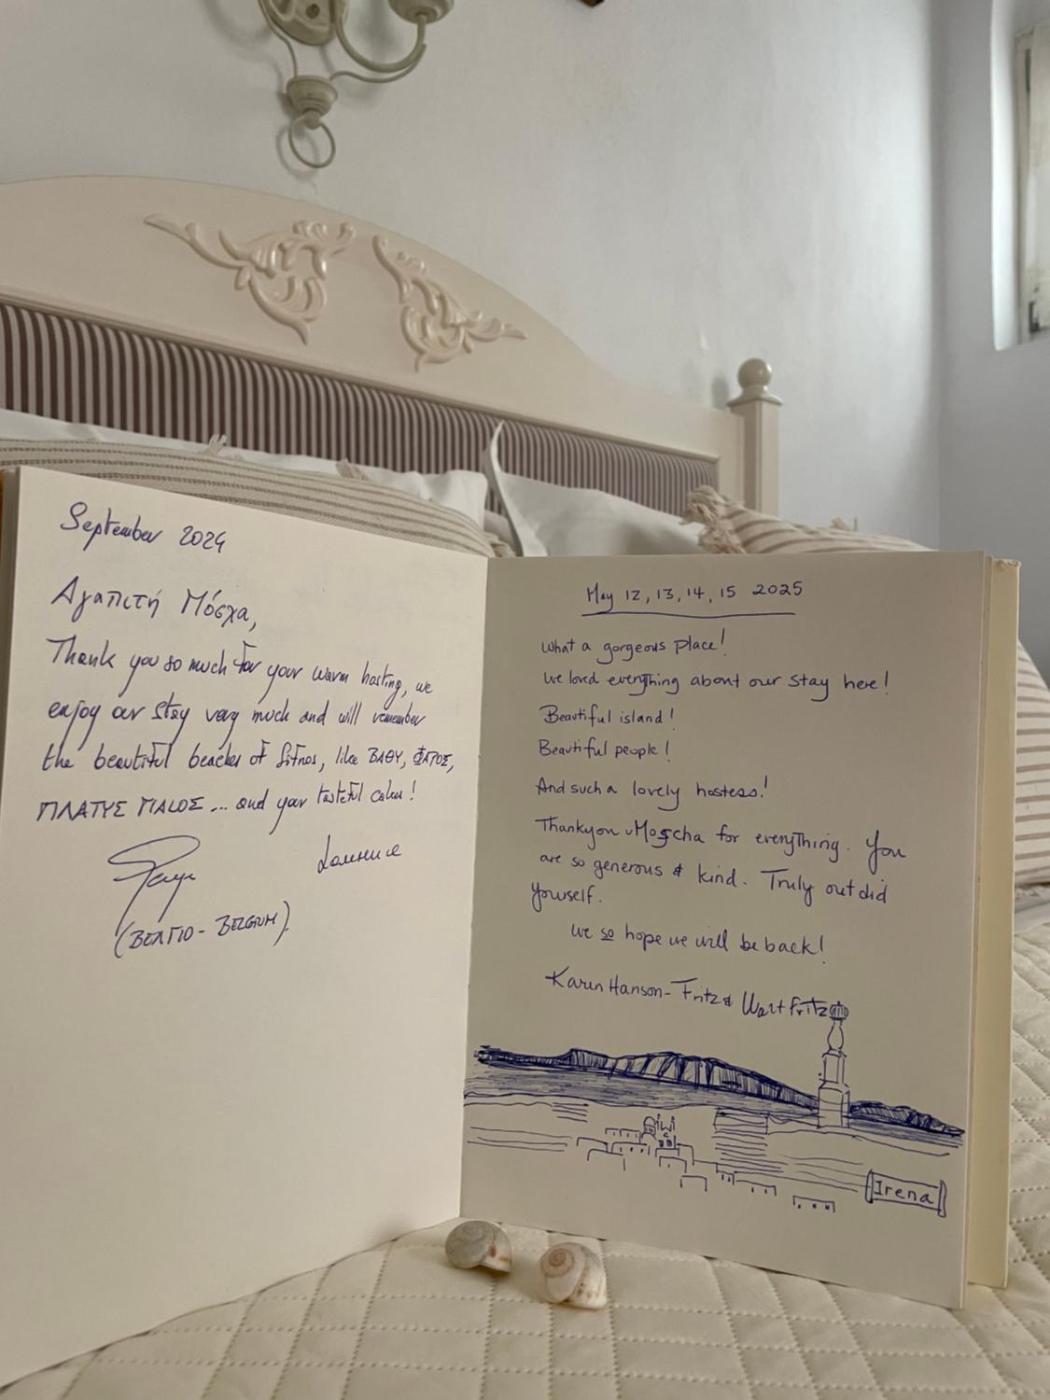 September 2024
Αγαπιτή Μόσχα,
Thank you so much for your warm hosting, we
enjoy our stay very much and will remember
the beautiful beaches of Sifnos, like ΒΑΘΥ, ΦΑΡΟΣ,
ΠΛΑΤΥΣ ΓΙΑLOΣ ... and your tasteful cakes!
(ΒΕΛΓΙΟ - BELGIUM)
May 12, 13, 14, 15 2025
What a gorgeous place!
We loved everything about our stay here!
Beautiful island!
Beautiful people!
And such a lovely hostess!
Thankyou Moscha for everything. You
are so generous & kind. Truly out did
yourself.
We so hope we will be back!
Karin Hanson-Fritz & Walt Fritz
Irena